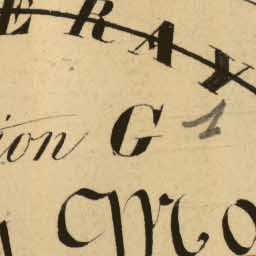 ERAY
ion G 1
Mo